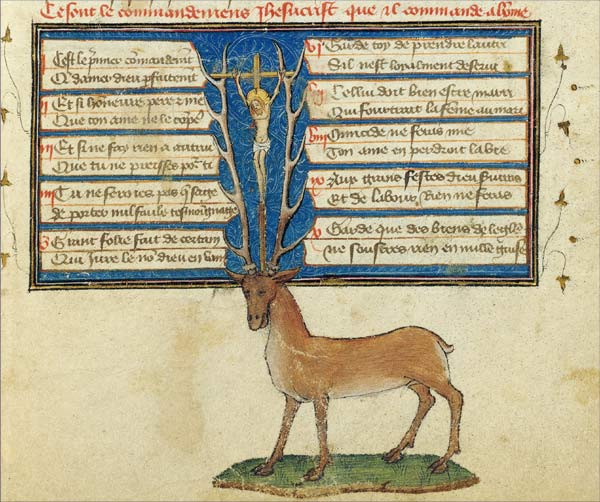 Ce sont le commandemens Jhesucrist que il commande a home
I Cest le pmier comandemt
Q damer dieu pfaitement
II Et si honneure pere z me
Que ton ame ne le compe
III Et si ne fay rien a autrui
Que tu ne preisses por ti
IIII Tu ne seroies pas q sage
de porter nul faulx tesmoignage
V Grant folie fait de certain
Qui jure le no dieu en vain
VI Garde toy de prendre lautr
Sil nest loyalment
VII Cellui doit bien estre marri
Qui fourtrait la feme au mari
VIII Omicide ne feras mie
Ton ame en perdroit la vie
IX Aux grans festes dieu
Et de labour rien ne feras
X Garde que des biens de leglise
ne rien en nulle guise